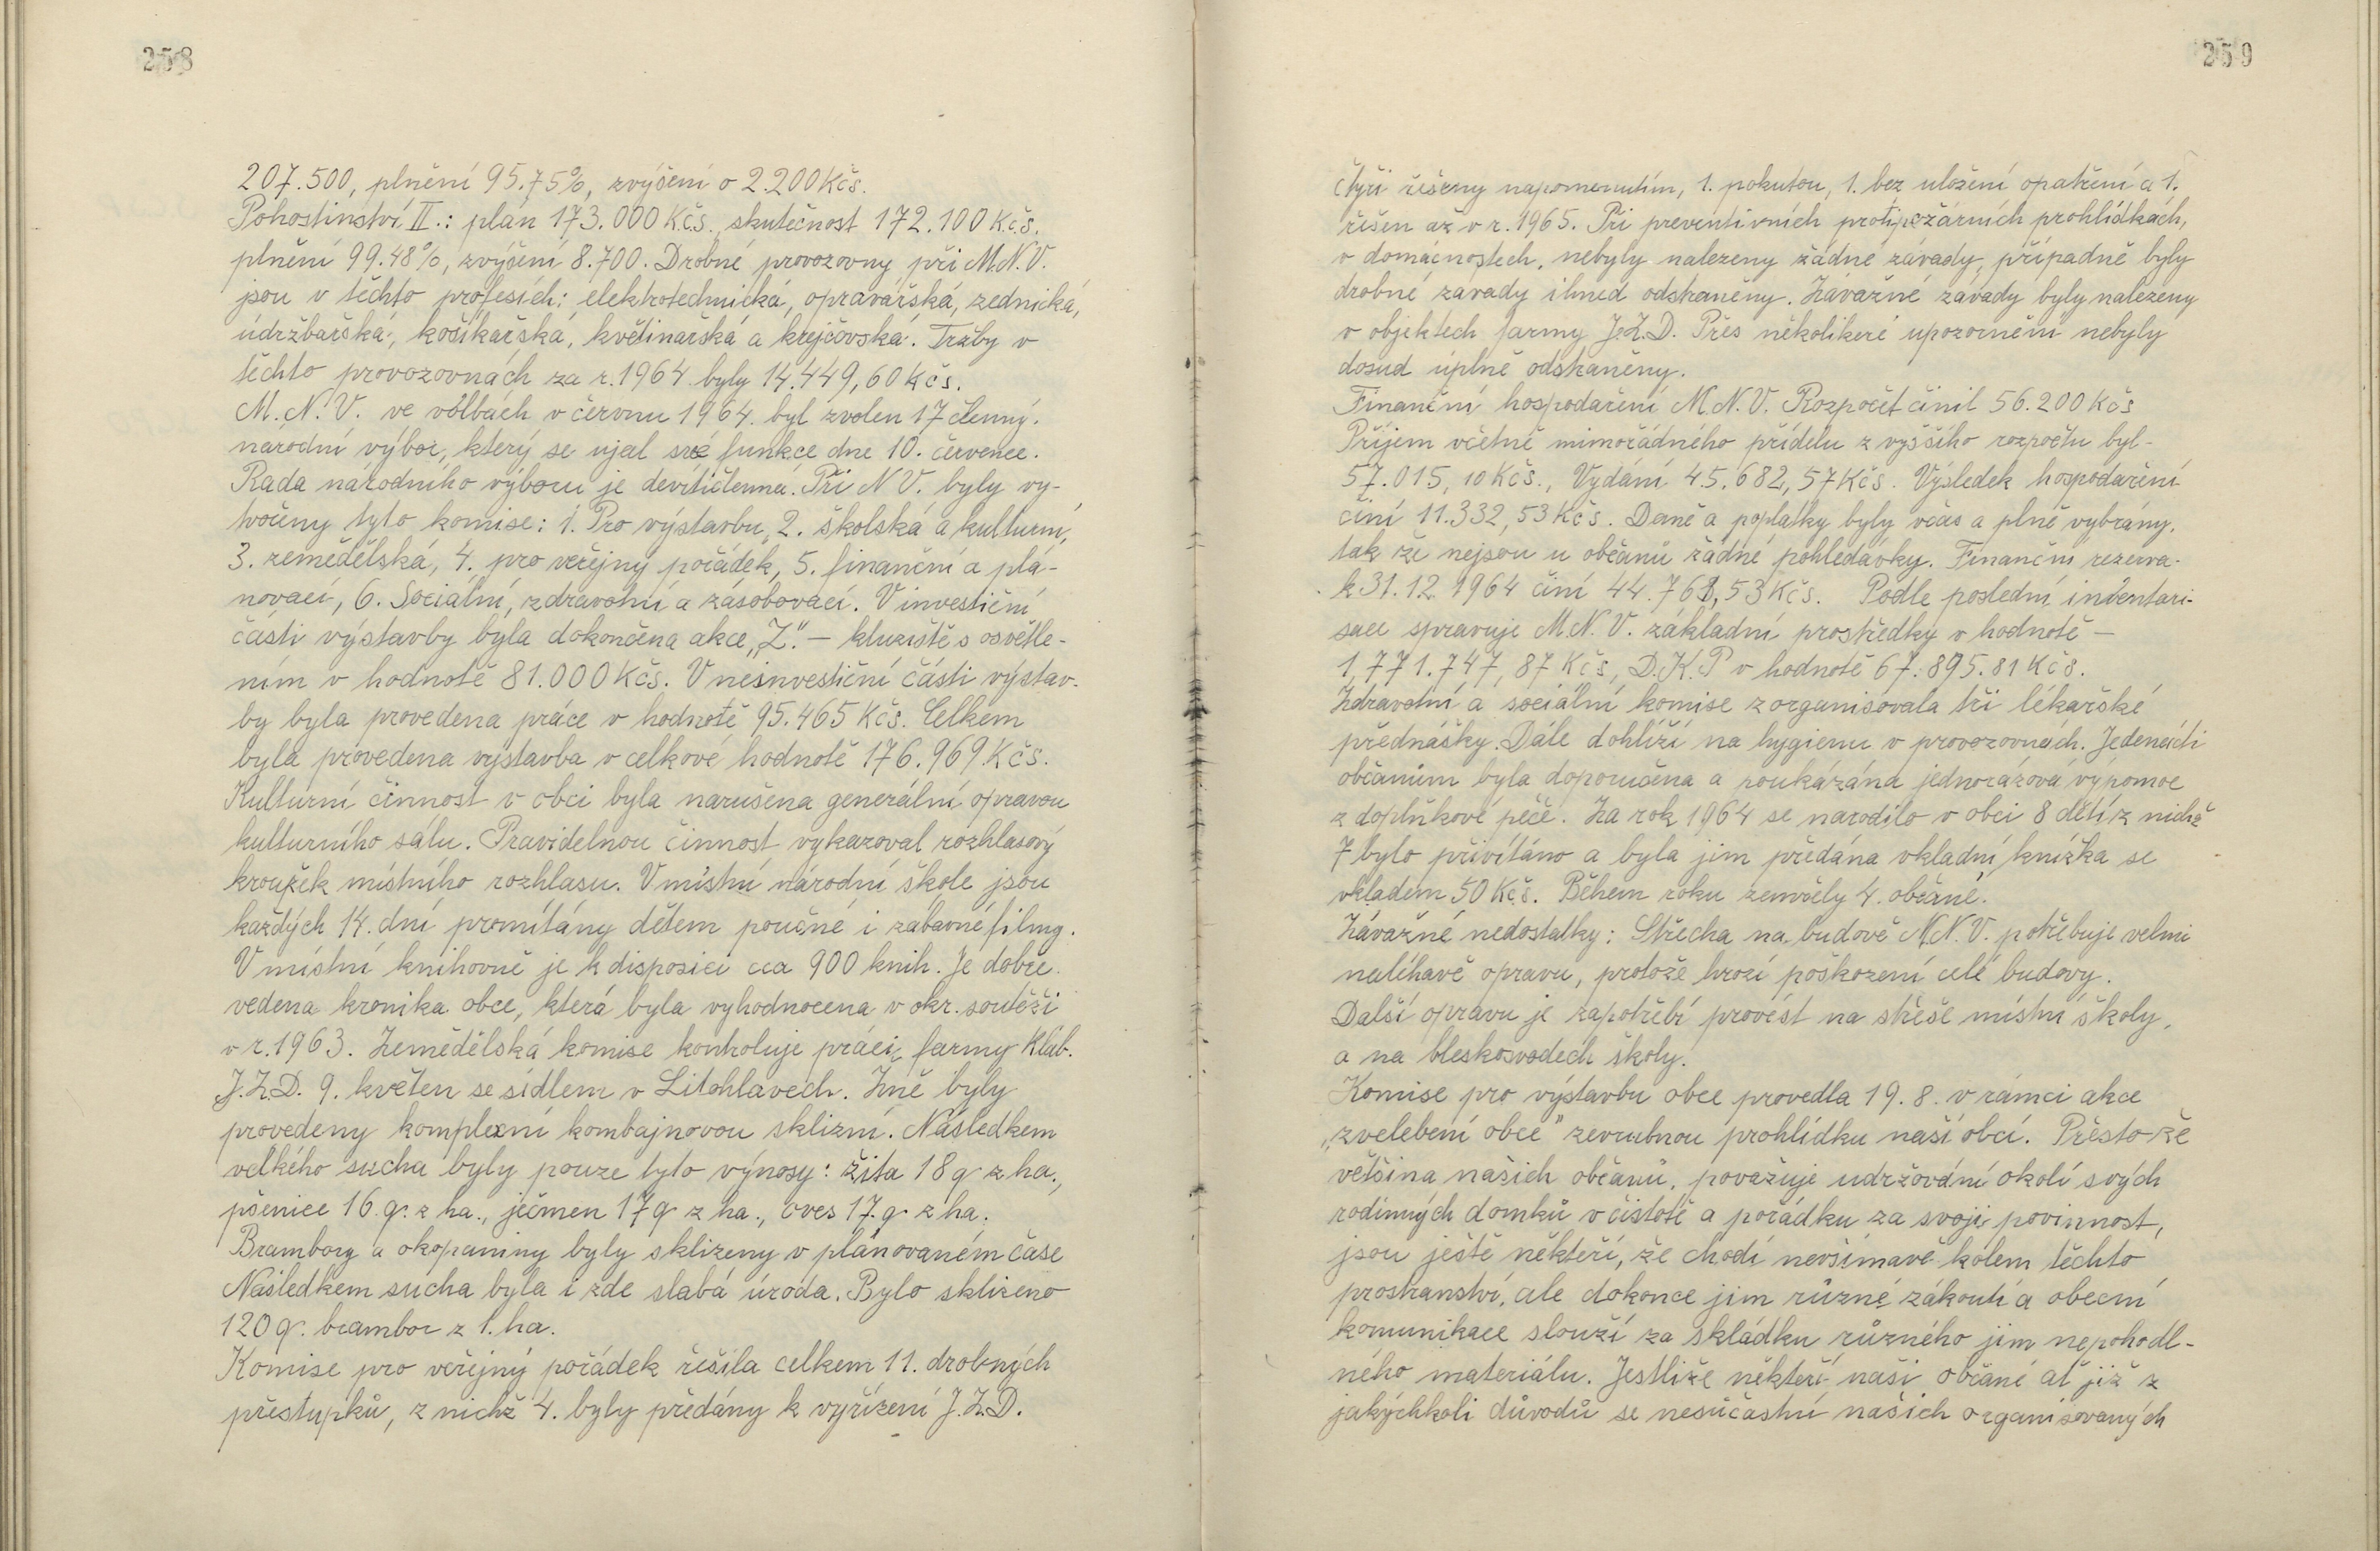 258
207.500, plnění 95.75%, zvýšení o 2.200 Kčs.
Pohostinství II.: plán 173.000 Kčs., skutečnost 172.100 Kčs.
plnění 99.48%, zvýšení 8.700. Drobné provozovny při M.N.V.
jsou v těchto profesích: elektrotechnická, opravářská, zednická,
údržbářská, košíkářská, květinářská a krejčovská. Tržby v
těchto provozovnách za r. 1964 byly 14.449,60 Kčs.
M.N.V. ve volbách v červnu 1964. byl zvolen 17 členný.
národní výbor, který se ujal své funkce dne 10. července.
Rada národního výboru je devítičlenná. Při N V. byly vy-
tvořeny tyto komise: 1. Pro výstavbu, 2. školská a kulturní,
3. zemědělská, 4. pro veřejný pořádek, 5. finanční a plá-
novací, 6. Sociální, zdravotní a zásobovací. V investiční
části výstavby byla dokončena akce „Z." – kluziště s osvětle-
ním v hodnotě 81.000 Kčs. V neinvestiční části výstav-
by byla provedena práce v hodnotě 95.465 Kčs. Celkem
byla provedena výstavba v celkové hodnotě 176.969 Kčs.
Kulturní činnost v obci byla narušena generální opravou
kulturního sálu. Pravidelnou činnost vykazoval rozhlasový
kroužek místního rozhlasu. V místní národní škole jsou
každých 14. dní promítány dětem poučné i zábavné filmy.
V místní knihovně je k disposici cca 900 knih. Je dobře
vedena kronika obce, která byla vyhodnocena v okr. soutěži
v r. 1963. Zemědělská komise kontroluje práci farmy Klab.
J.Z.D. 9. květen se sídlem v Litohlavech. Žně byly
provedeny komplexní kombajnovou sklizní. Následkem
velkého sucha byly pouze tyto výnosy: žita 18 q z ha.,
pšenice 16. q. z ha., ječmen 17 q z ha., oves 17. q z ha.
Brambory a okopaniny byly sklizeny v plánovaném čase
Následkem sucha byla i zde slabá úroda. Bylo sklizeno
120 q. brambor z 1. ha.
Komise pro veřejný pořádek řešila celkem 11. drobných
přestupků, z nichž 4. byly předány k vyřízení J.Z.D.
259
čtyři řešeny napomenutím, 1. pokutou, 1. bez uložení opatření a 1.
řešen až v r. 1965. Při preventivních protipožárních prohlídkách,
v domácnostech, nebyly nalezeny žádné závady, případně byly
drobné závady ihned odstraněny. Závažné závady byly nalezeny
v objektech farmy J.Z.D. Přes několikeré upozornění nebyly
dosud úplně odstraněny.
Finanční hospodaření M.N.V. Rozpočet činil 56.200 Kčs
Příjem včetně mimořádného přídělu z vyššího rozpočtu byl-
57.015,10 Kčs., Vydání 45.682,57 Kčs. Výsledek hospodaření
činí 11.332,53 Kčs. Daně a poplatky byly včas a plně vybrány.
tak že nejsou u občanů žádné pohledávky. Finanční rezerva-
k 31.12. 1964 činí 44.768,53 Kčs. Podle poslední inventari-
sace spravuje M.N.V. základní prostředky v hodnotě –
1,771.747,87 Kčs, D.K.P v hodnotě 67.895.81 Kčs.
Zdravotní a sociální komise zorganisovala tři lékařské
přednášky. Dále dohlíží na hygienu v provozovnách. Jedenácti
občanům byla doporučena a poukázána jednorázová výpomoc
z doplňkové péče. Za rok 1964 se narodilo v obci 8 dětí z nichž
7 bylo přivítáno a byla jim předána vkladní knížka se
vkladem 50 Kčs. Během roku zemřely 4. občané.
Závažné nedostatky: Střecha na budově M.N.V. potřebuje velmi
naléhavě opravu, protože hrozí poškození celé budovy.
Další opravu je zapotřebí provést na střeše místní školy,
a na bleskosvodech školy.
Komise pro výstavbu obce provedla 19. 8. v rámci akce
„zvelebení obce" zevrubnou prohlídku naší obcí. Přesto že
většina našich občanů, považuje udržování okolí svých
rodinných domků v čistotě a pořádku za svoji povinnost,
jsou ještě někteří, že chodí nevšímavě kolem těchto
prostranství, ale dokonce jim různé zákoutí a obecní
komunikace slouží za skládku různého jim nepohodl-
ného materiálu. Jestliže někteří naši občané ať již z
jakýchkoli důvodů se nesúčastní našich organisovaných